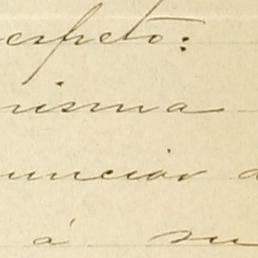 respeto:
misma
unciar a
á su